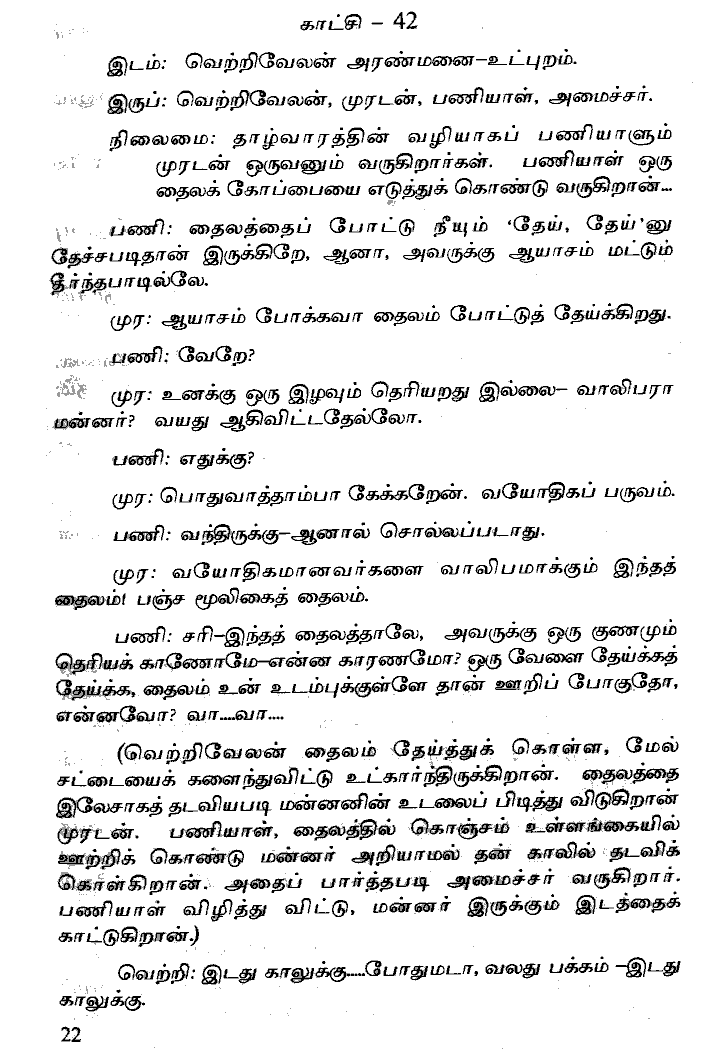 காட்சி – 42
இடம்: வெற்றிவேலன் அரண்மனை–உட்புறம்.
இருப்: வெற்றிவேலன், முரடன், பணியாள், அமைச்சர்.
நிலைமை: தாழ்வாரத்தின் வழியாகப் பணியாளும்
முரடன் ஒருவனும் வருகிறார்கள். பணியாள் ஒரு
தைலக் கோப்பையை எடுத்துக் கொண்டு வருகிறான்...
பணி: தைலத்தைப் போட்டு நீயும் ‘தேய், தேய்’னு
தேச்சபடிதான் இருக்கிறே, ஆனா, அவருக்கு ஆயாசம் மட்டும்
தீர்ந்தபாடில்லே.
முர: ஆயாசம் போக்கவா தைலம் போட்டுத் தேய்க்கிறது.
பணி: வேறே?
முர: உனக்கு ஒரு இழவும் தெரியறது இல்லை– வாலிபரா
மன்னர்? வயது ஆகிவிட்டதேல்லோ.
பணி: எதுக்கு?
முர: பொதுவாத்தாம்பா கேக்கறேன். வயோதிகப் பருவம்.
பணி: வந்திருக்கு–ஆனால் சொல்லப்படாது.
முர: வயோதிகமானவர்களை வாலிபமாக்கும் இந்தத்
தைலம்! பஞ்ச மூலிகைத் தைலம்.
பணி: சரி–இந்தத் தைலத்தாலே, அவருக்கு ஒரு குணமும்
தெரியக் காணோமே–என்ன காரணமோ? ஒரு வேளை தேய்க்கத்
தேய்க்க, தைலம் உன் உடம்புக்குள்ளே தான் ஊறிப் போகுதோ,
என்னவோ? வா....வா....
(வெற்றிவேலன் தைலம் தேய்த்துக் கொள்ள, மேல்
சட்டையைக் களைந்துவிட்டு உட்கார்ந்திருக்கிறான். தைலத்தை
இலேசாகத் தடவியபடி மன்னனின் உடலைப் பிடித்து விடுகிறான்
முரடன். பணியாள், தைலத்தில் கொஞ்சம் உள்ளங்கையில்
ஊற்றிக் கொண்டு மன்னர் அறியாமல் தன் காலில் தடவிக்
கொள்கிறான். அதைப் பார்த்தபடி அமைச்சர் வருகிறார்.
பணியாள் விழித்து விட்டு, மன்னர் இருக்கும் இடத்தைக்
காட்டுகிறான்.)
வெற்றி: இடது காலுக்கு.....போதுமடா, வலது பக்கம் –இடது
காலுக்கு.
22